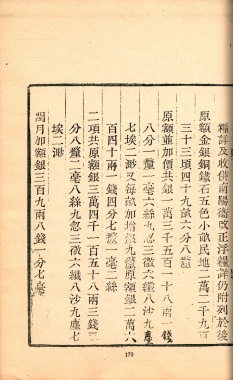 糧詳及收併南陽衛改正浮糧詳仍附列於後
原額金銀銅鐵石五色小畝民地二萬二千九百
三十三頃四十九畝六分八釐
原額並加價共銀一萬三千五百二十八兩一錢
八分一釐一毫二絲六忽三微六纖八沙九塵
七埃二渺又每畝加增銀九釐原額銀二萬六
百四十兩一錢四分七釐一毫二絲
二項共原額銀三萬四千一百五十八兩三錢二
分八釐二毫八絲九忽三微六纖八沙九塵七
埃二渺
閏月加額銀三百九兩八錢一分七毫
170